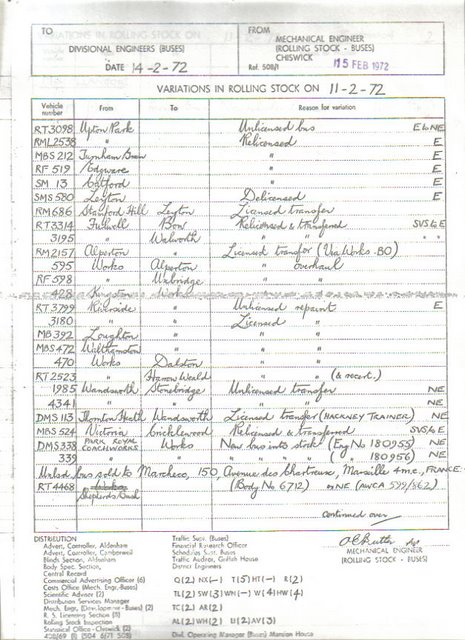 TO
FROM
DIVISIONAL ENGINEERS (BUSES)
MECHANICAL ENGINEER
(ROLLING STOCK - BUSES)
CHISWICK
DATE 14-2-72
Ref. 508/1
15 FEB 1972
VARIATIONS IN ROLLING STOCK ON 11-2-72
Vehicle number From To Reason for variation
RT3098 Upton Park Unlicensed bus E to NE
RML2538 " Relicensed E
MBS 212 Turnham Green " E
RF 519 Edgware " E
SM 13 Catford " E
SMS 580 Leyton Delicensed E
RM 686 Stamford Hill Leyton Licensed transfer
RT3314 Fulwell Bow Relicensed & transferred SUS to E
3195 " Walworth " " " "
RM2157 Alperton " Licensed transfer (Via Works. BO)
595 Works Alperton " overhaul
RF 598 " Uxbridge " "
428 Kingston Works " "
RT3799 Riverside " Unlicensed repaint E
3180 " " Licensed "
MB 392 Loughton " " "
MBS 472 Walthamstow " " "
470 Works Dalston " "
RT2523 " Harrow Weald " " (& recert.)
1985 Wandsworth Stonebridge Unlicensed transfer NE
4341 " " " " NE
DMS 113 Thornton Heath Wandsworth Licensed transfer (HACKNEY TRAINER) NE
MBS 524 Victoria Cricklewood Relicensed & transferred SUS to E
DMS 338 PARK ROYAL COACHWORKS Works New bus into stock (Eng No 180955) NE
339 " " " " " " (" " 180956) NE
Unlsd bus sold to Marcheco, 150, Avenue des Chartreux, Marseille 4me, FRANCE
RT4468 Shepherds Bush (Body No 6712) NE (AWCA 599/562)
continued over
DISTRIBUTION
Advert. Controller, Aldenham
Advert. Controller, Camberwell
Blinds Section, Aldenham
Body Spec. Section,
Central Record
Commercial Advertising Officer (6)
Costs Office (Mech. Engr-Buses)
Scientific Advisor (2)
Distribution Services Manager
Mech. Engr. (Development - Buses) (2)
R. S. Licensing Section (5)
Rolling Stock Inspection
Statistical Office - Chiswick (2)
Traffic Supt. (Buses)
Financial Research Officer
Schedules Supt. Buses
Traffic Audit, Griffith House
District Engineers
Q(2) NX(-) T(5) HT(-) R(2)
TL(2) SW(3) WN(-) W(4) HW(4)
TC(2) AR(2)
AL(2) WH(2) B(2) AV(3)
Divl. Operating Manager (Buses) Mansion House
MECHANICAL ENGINEER
(ROLLING STOCK - BUSES)